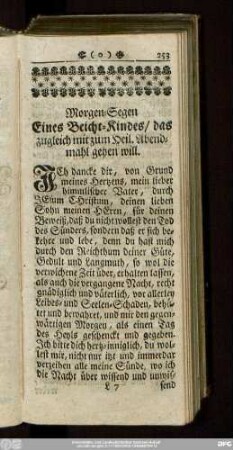 (o) 253
Morgen-Segen
Eines Beicht-Kindes/ das
zugleich mit zum Heil. Abend-
mahl gehen will.
ICh dancke dir, von Grund
meines Hertzens, mein lieber
himmlischer Vater, durch
JEsum Christum, deinen lieben
Sohn meinen HErrn, für deinen
Beweiß, daß du nicht wollest den Tod
des Sünders, sondern daß er sich be-
kehre und lebe, denn du hast mich
durch den Reichthum deiner Güte,
Gedult und Langmuth, so wol die
verwichene Zeit über, erhalten lassen,
als auch die vergangne Nacht, recht
gnädiglich und väterlich, vor allerley
Leibes- und Seelen-Schaden, behü-
tet und bewahret, und mir den gegen-
wärtigen Morgen, als einen Tag
des Heyls geschenckt und gegeben.
Ich bitte dich hertz-inniglich, du wol-
lest mir, nicht nur itzt und immerdar
verzeihen alle meine Sünde, wo ich
die Nacht über wissend und unwis-
L 7 send